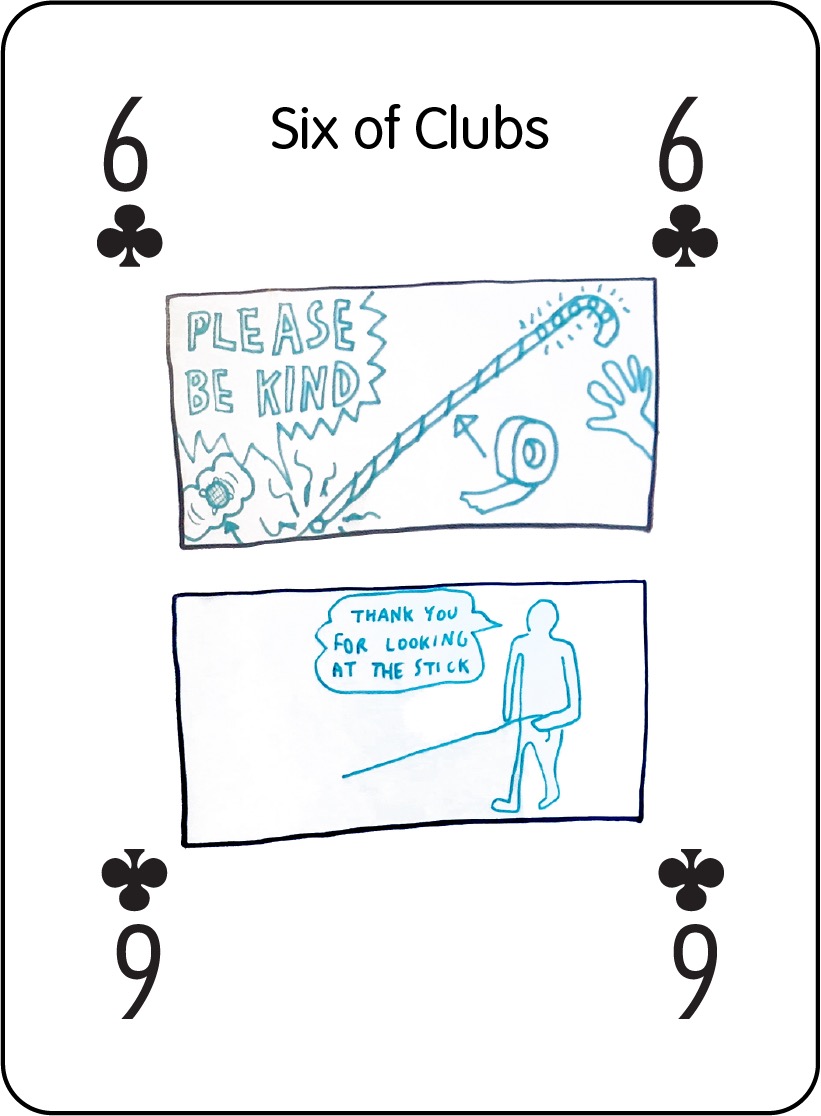 6 Six of Clubs 6
PLEASE
BE KIND
THANK YOU
FOR LOOKING
AT THE STICK
6 6